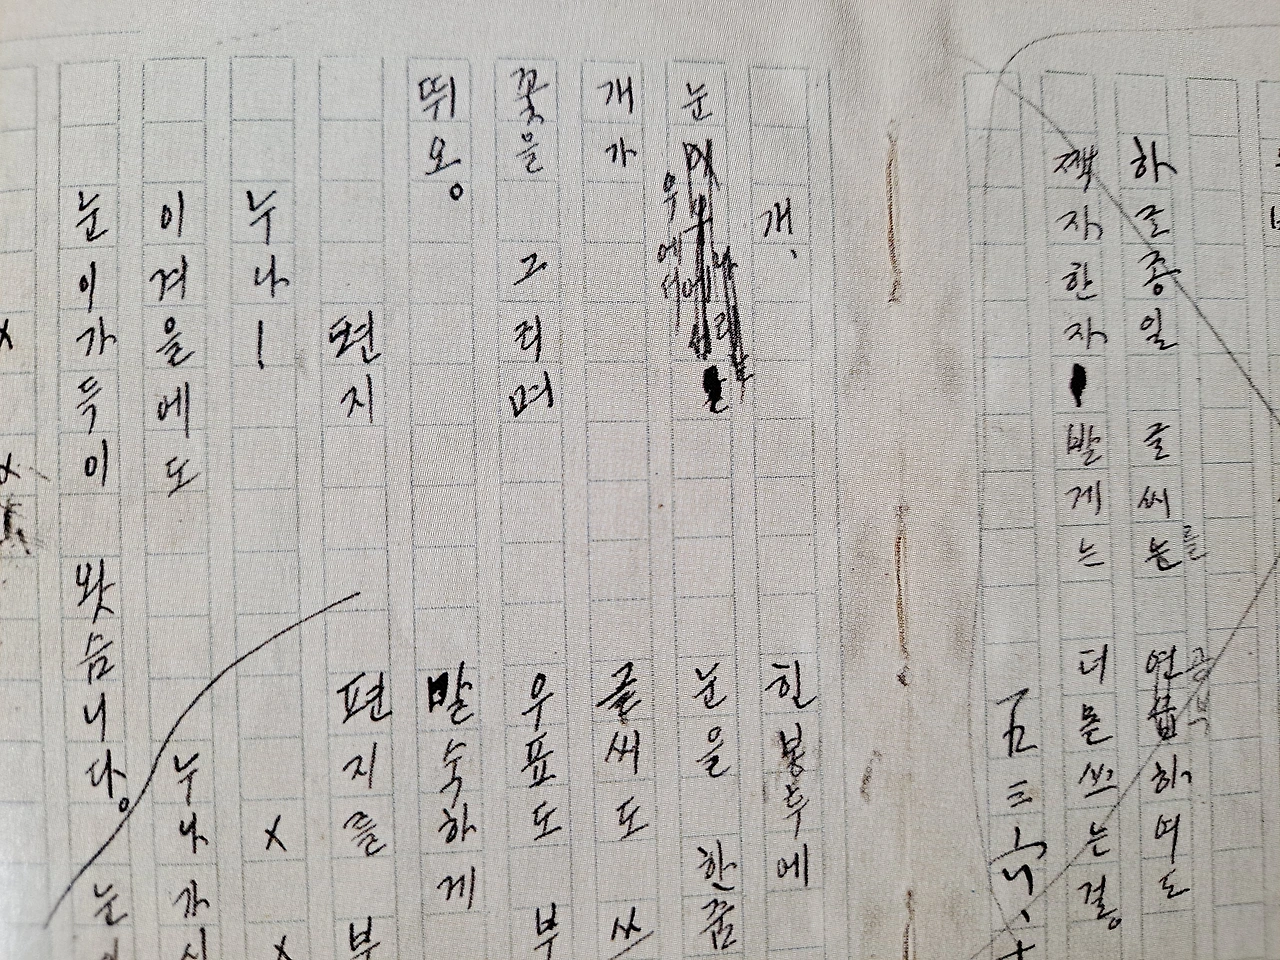 하로종일 글씨를 공부하여도
짹자한자 발게는 더몯쓰는걸。
개、
눈 우에서
개가
꽃을 그리며
뛰오。
편지
누나!
이겨을에도
눈이가득이 왓슴니다。
힌봉투에
눈을 한줌
글씨도 쓰
우표도 부
말숙하게
편지를 부
누나가신
눈